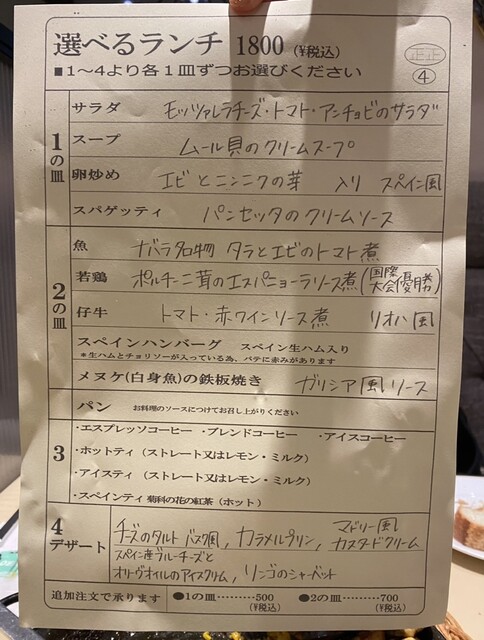 選べるランチ 1800 (¥税込)
■1～4より各1皿ずつお選びください
④
1の皿
サラダ モッツァレラチーズ・トマト・アンチョビのサラダ
スープ ムール貝のクリームスープ
卵炒め エビとニンニクの芽 入り スペイン風
スパゲッティ パンセッタのクリームソース
2の皿
魚 ナバラ名物 タラとエビのトマト煮
若鶏 ポルチーニ茸のエスパニョーラソース煮(国際大会優勝)
仔牛 トマト・赤ワインソース煮 リオハ風
スペインハンバーグ スペイン生ハム入り
*生ハムとチョリソーが入っている為、パテに赤みがあります
メヌケ(白身魚)の鉄板焼き ガリシア風ソース
3
パン お料理のソースにつけてお召し上がりください
・エスプレッソコーヒー ・ブレンドコーヒー ・アイスコーヒー
・ホットティ (ストレート又はレモン・ミルク)
・アイスティ (ストレート又はレモン・ミルク)
・スペインティ 菊科の花の紅茶(ホット)
4
デザート
チーズのタルト バスク風, カラメルプリン, マドリー風カスタードクリーム
スペイン産ブルーチーズと
オリーヴオイルのアイスクリム, リンゴのシャーベット
追加注文で承ります ●1の皿………500 (¥税込) ●2の皿………700 (¥税込)